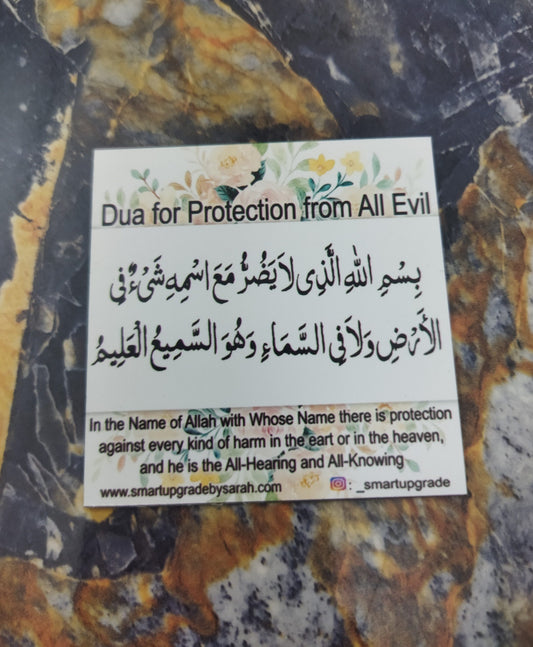 Dua for Protection from All Evil
بِسْمِ اللهِ الَّذِى لاَ يَضُرُّ مَعَ اسْمِهِ شَىْءٌ فِى
الأَرْضِ وَلاَ فِى السَّمَاءِ وَهُوَ السَّمِيعُ الْعَلِيمُ
In the Name of Allah with Whose Name there is protection
against every kind of harm in the eart or in the heaven,
and he is the All-Hearing and All-Knowing
www.smartupgradebysarah.com : _smartupgrade